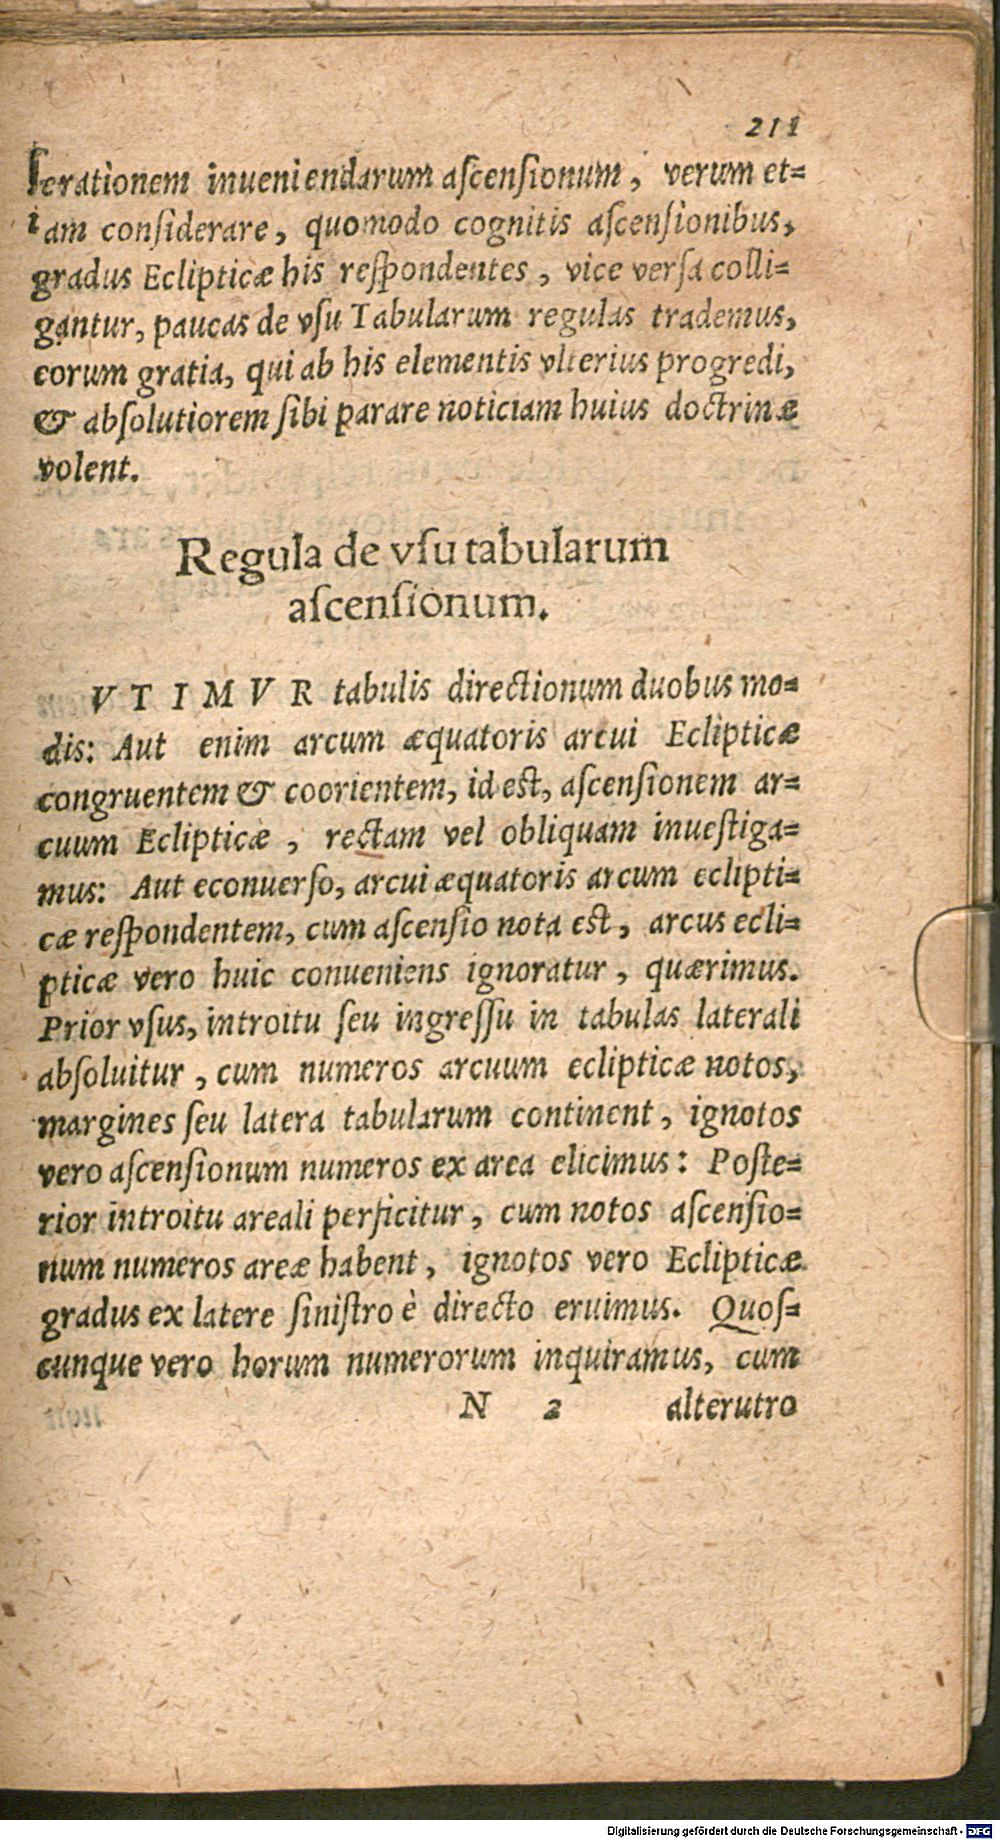 211
ſerationem inueniendarum aſcenſionum, verum et=
iam conſiderare, quomodo cognitis aſcenſionibus,
gradus Eclipticæ his reſpondentes, vice verſa colli=
gantur, paucas de vſu Tabularum regulas trademus,
eorum gratia, qui ab his elementis vlterius progredi,
& abſolutiorem ſibi parare noticiam huius doctrinæ
volent.
Regula de vſu tabularum
aſcenſionum.
VTIMVR tabulis directionum duobus mo=
dis: Aut enim arcum æquatoris arcui Eclipticæ
congruentem & coorientem, id est, aſcenſionem ar=
cuum Eclipticæ, rectam vel obliquam inueſtiga=
mus: Aut econuerſo, arcui æquatoris arcum eclipti=
cæ reſpondentem, cum aſcenſio nota est, arcus ecli=
pticæ vero huic conueniens ignoratur, quærimus.
Prior vſus, introitu ſeu ingreſſu in tabulas laterali
abſoluitur, cum numeros arcuum eclipticæ notos,
margines ſeu latera tabularum continent, ignotos
vero aſcenſionum numeros ex area elicimus: Poſte=
rior introitu areali perficitur, cum notos aſcenſio=
num numeros areæ habent, ignotos vero Eclipticæ
gradus ex latere ſiniſtro è directo eruimus. Quoſ=
cunque vero horum numerorum inquiramus, cum
N 2 alterutro
Digitalisierung gefördert durch die Deutsche Forschungsgemeinschaft - DFG